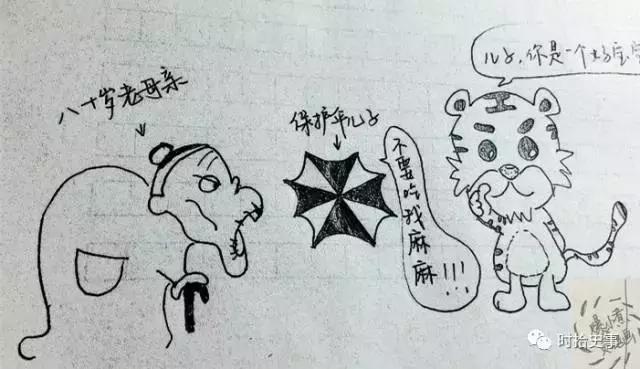 八十岁老母亲
保护伞儿子
不要吃我麻麻!!!
儿子,你是一个好宝宝
时拾史事